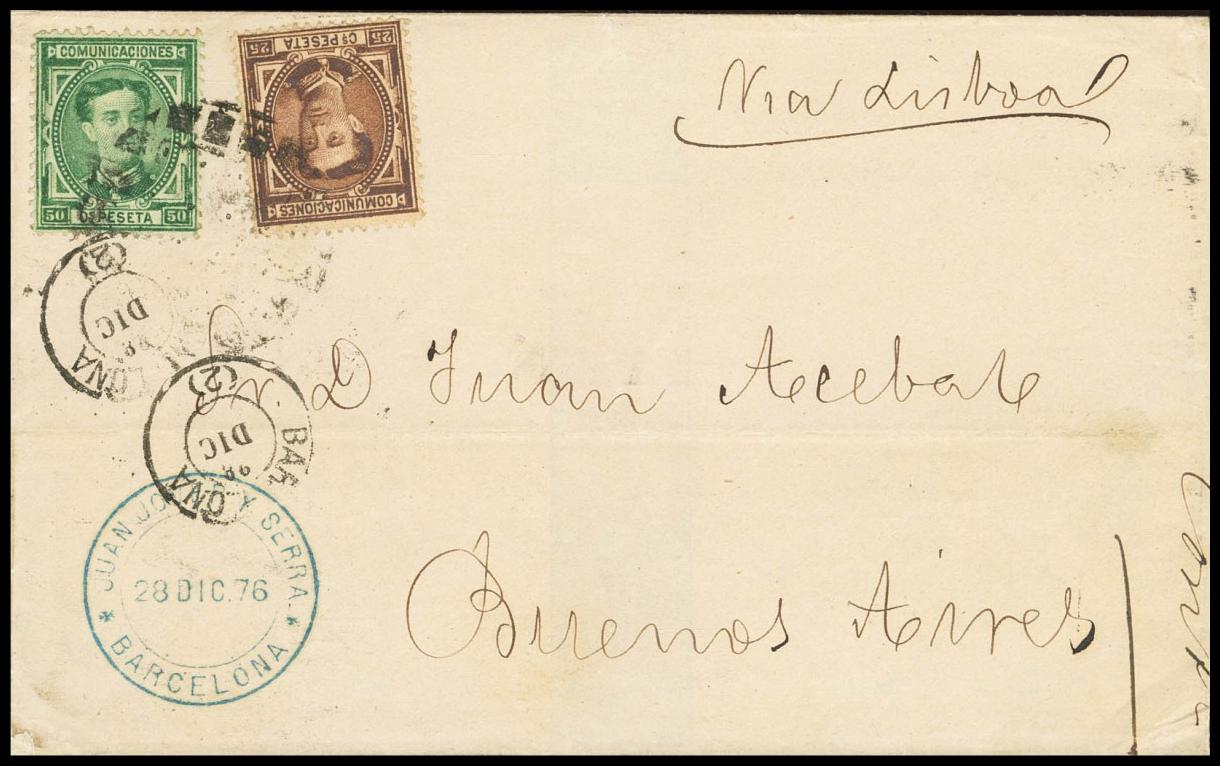 COMUNICACIONES
50 Cs PESETA 50
25 Cs PESETA 25
COMUNICACIONES
Via Lisboa
(2)
DIC
LONA
Sr. D. Juan Acebal
(2)
BAR
DIC
28
ONA
Buenos Aires
JUAN JO Y SERRA
28 DIC. 76
* BARCELONA *